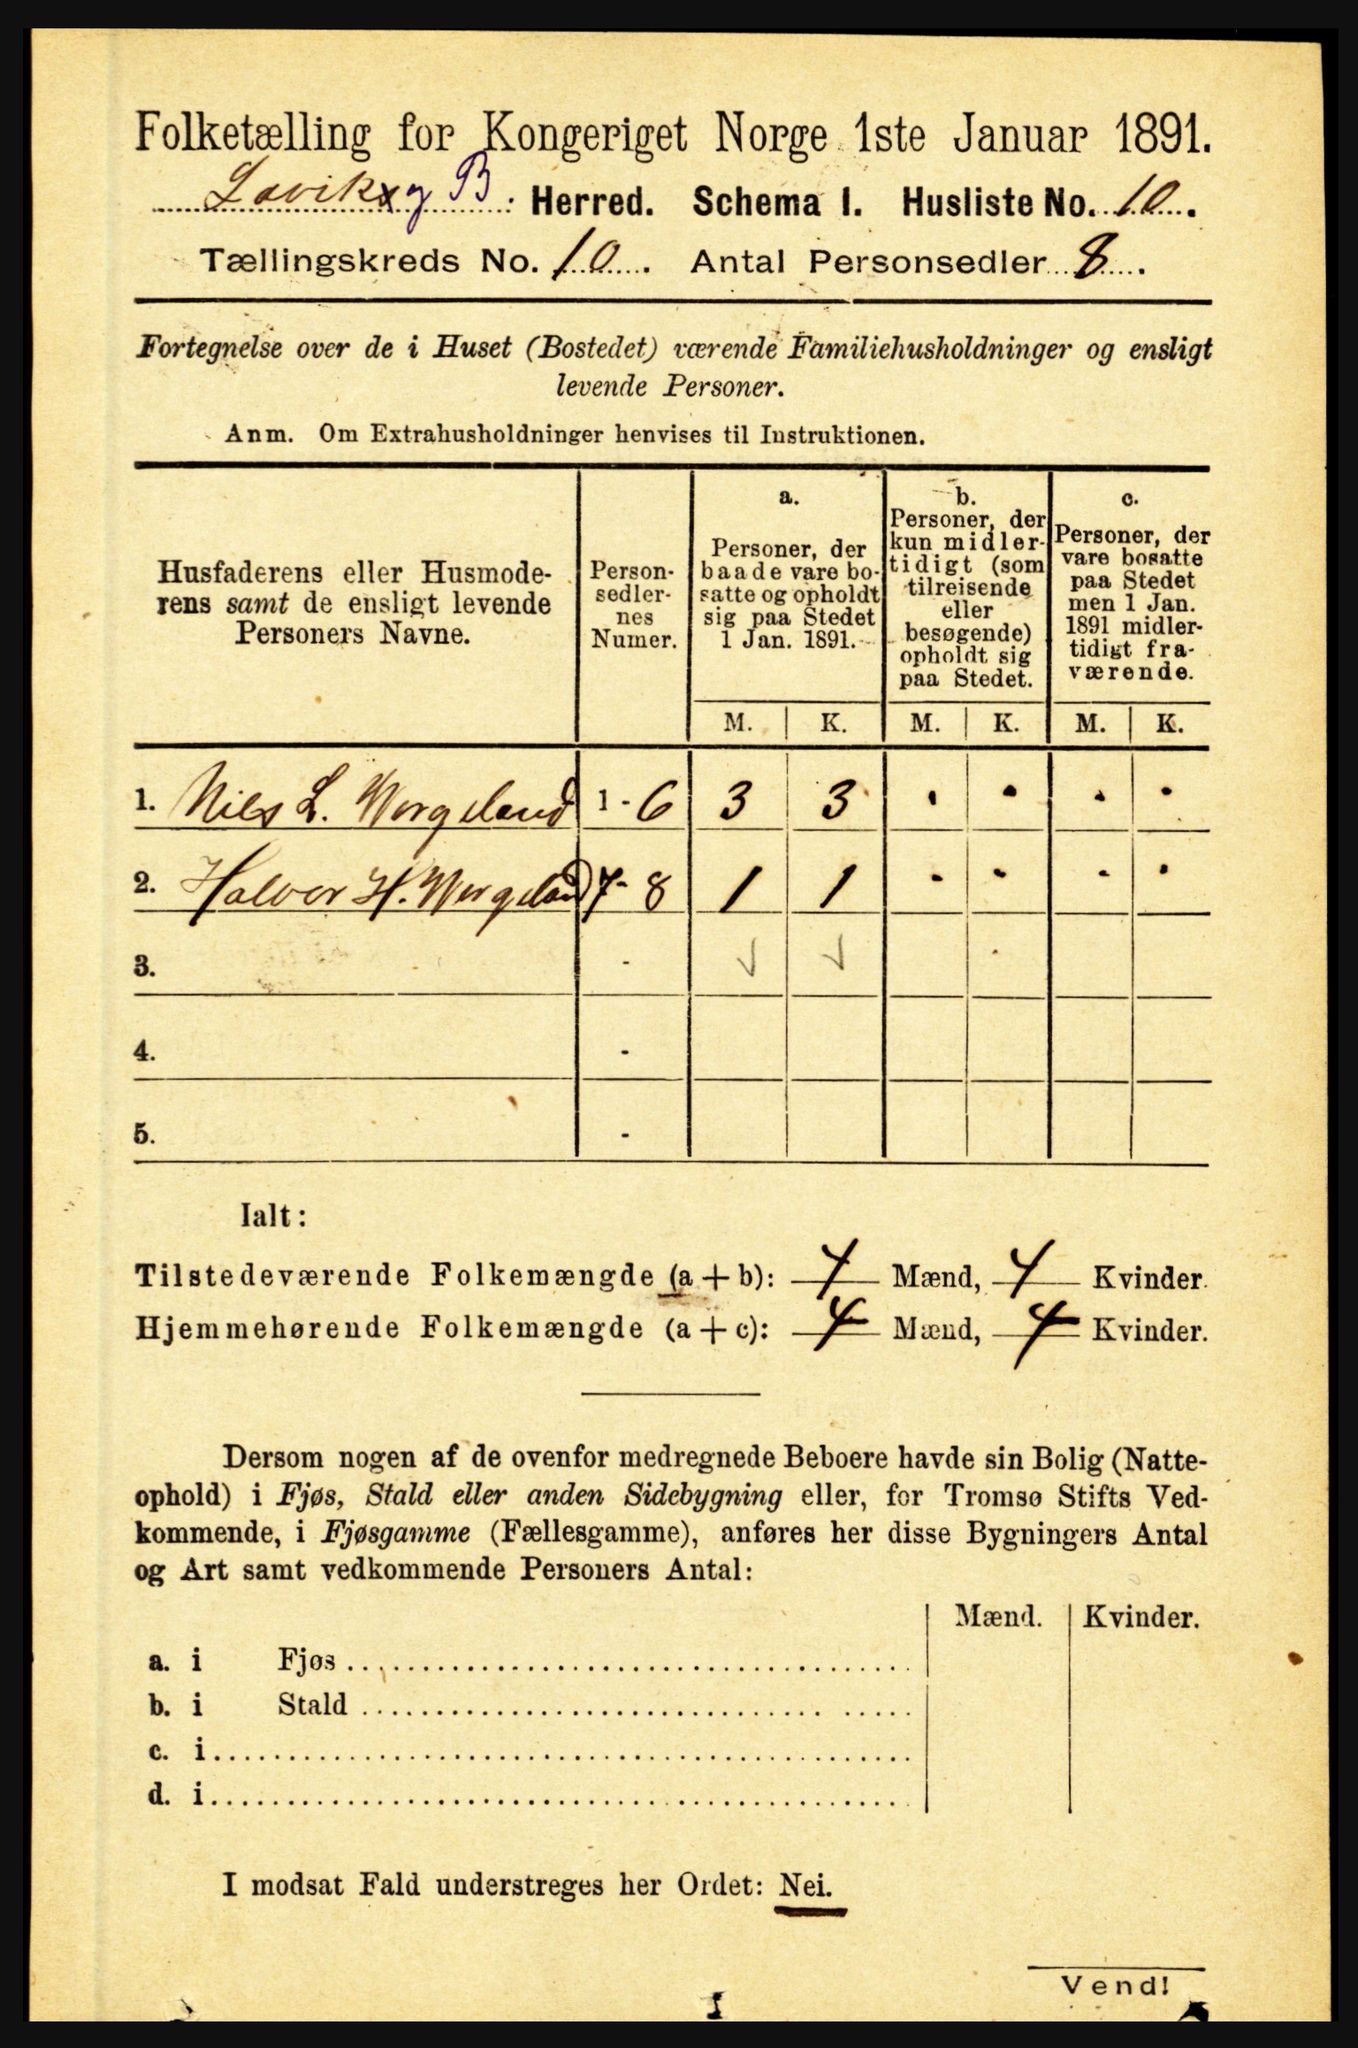 Folketælling for Kongeriget Norge 1ste Januar 1891.
Lavik og B. Herred. Schema I. Husliste No. 10.
Tællingskreds No. 10. Antal Personsedler 8.
Fortegnelse over de i Huset (Bostedet) værende Familiehusholdninger og ensligt
levende Personer.
Anm. Om Extrahusholdninger henvises til Instruktionen.
Husfaderens eller Husmode-
rens samt de ensligt levende
Personers Navne.
Person-
sedler-
nes
Numer.
a.
Personer, der
baade vare bo-
satte og opholdt
sig paa Stedet
1 Jan. 1891.
b.
Personer, der
kun midler-
tidigt (som
tilreisende
eller
besøgende)
opholdt sig
paa Stedet.
c.
Personer, der
vare bosatte
paa Stedet
men 1 Jan.
1891 midler-
tidigt fra-
værende.
M. K. M. K. M. K.
1. Nils L. Wergeland 1-6 3 3 . . . .
2. Halvor H. Wergeland 7-8 1 1 . . . .
3. - ✓ ✓
4. -
5. -
Ialt:
Tilstedeværende Folkemængde (a+b): 4 Mænd, 4 Kvinder.
Hjemmehørende Folkemængde (a+c): 4 Mænd, 4 Kvinder.
Dersom nogen af de ovenfor medregnede Beboere havde sin Bolig (Natte-
ophold) i Fjøs, Stald eller anden Sidebygning eller, for Tromsø Stifts Ved-
kommende, i Fjøsgamme (Fællesgamme), anføres her disse Bygningers Antal
og Art samt vedkommende Personers Antal:
Mænd. Kvinder.
a. i Fjøs
b. i Stald
c. i
d. i
I modsat Fald understreges her Ordet: Nei.
Vend!